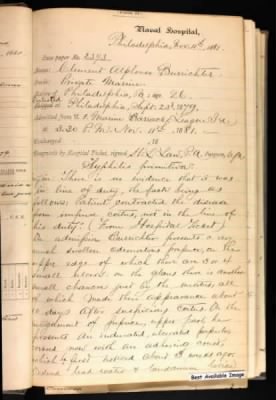 Naval Hospital,
Philadelphia, Nov. 11th, 1881.
Case paper No. 2393.
Name: Clement Alfonso Burichter
Rate: Private Marine
Philadelphia, Pa: age 26.
Enlisted
Philadelphia, Sept 23d 1879.
Admitted from U. S. Marine Barracks, League I. Pa.
2:30 P.M. Nov. 11th, 1881.
Discharged 18
Diagnosis by Hospital Ticket, signed
Syphilis primitiva.
There is no evidence that it was
in line of duty, the facts being as
follows: Patient contracted the disease
from impure coitus, not in the line of
his duty. (From Hospital Ticket)
On admission Burichter presents a very
much swollen edematous prepuce, on the
edge of which there are 3 or 4
small ulcers on the glans there is another
small chancre just by the meatus, all
of which made their appearance about
10 days after suspicious coitus. On the
upper
presents an indurated, ulcerated
round now with an adhering crust,
which he first noticed about 3 weeks ago.
Best Available Image